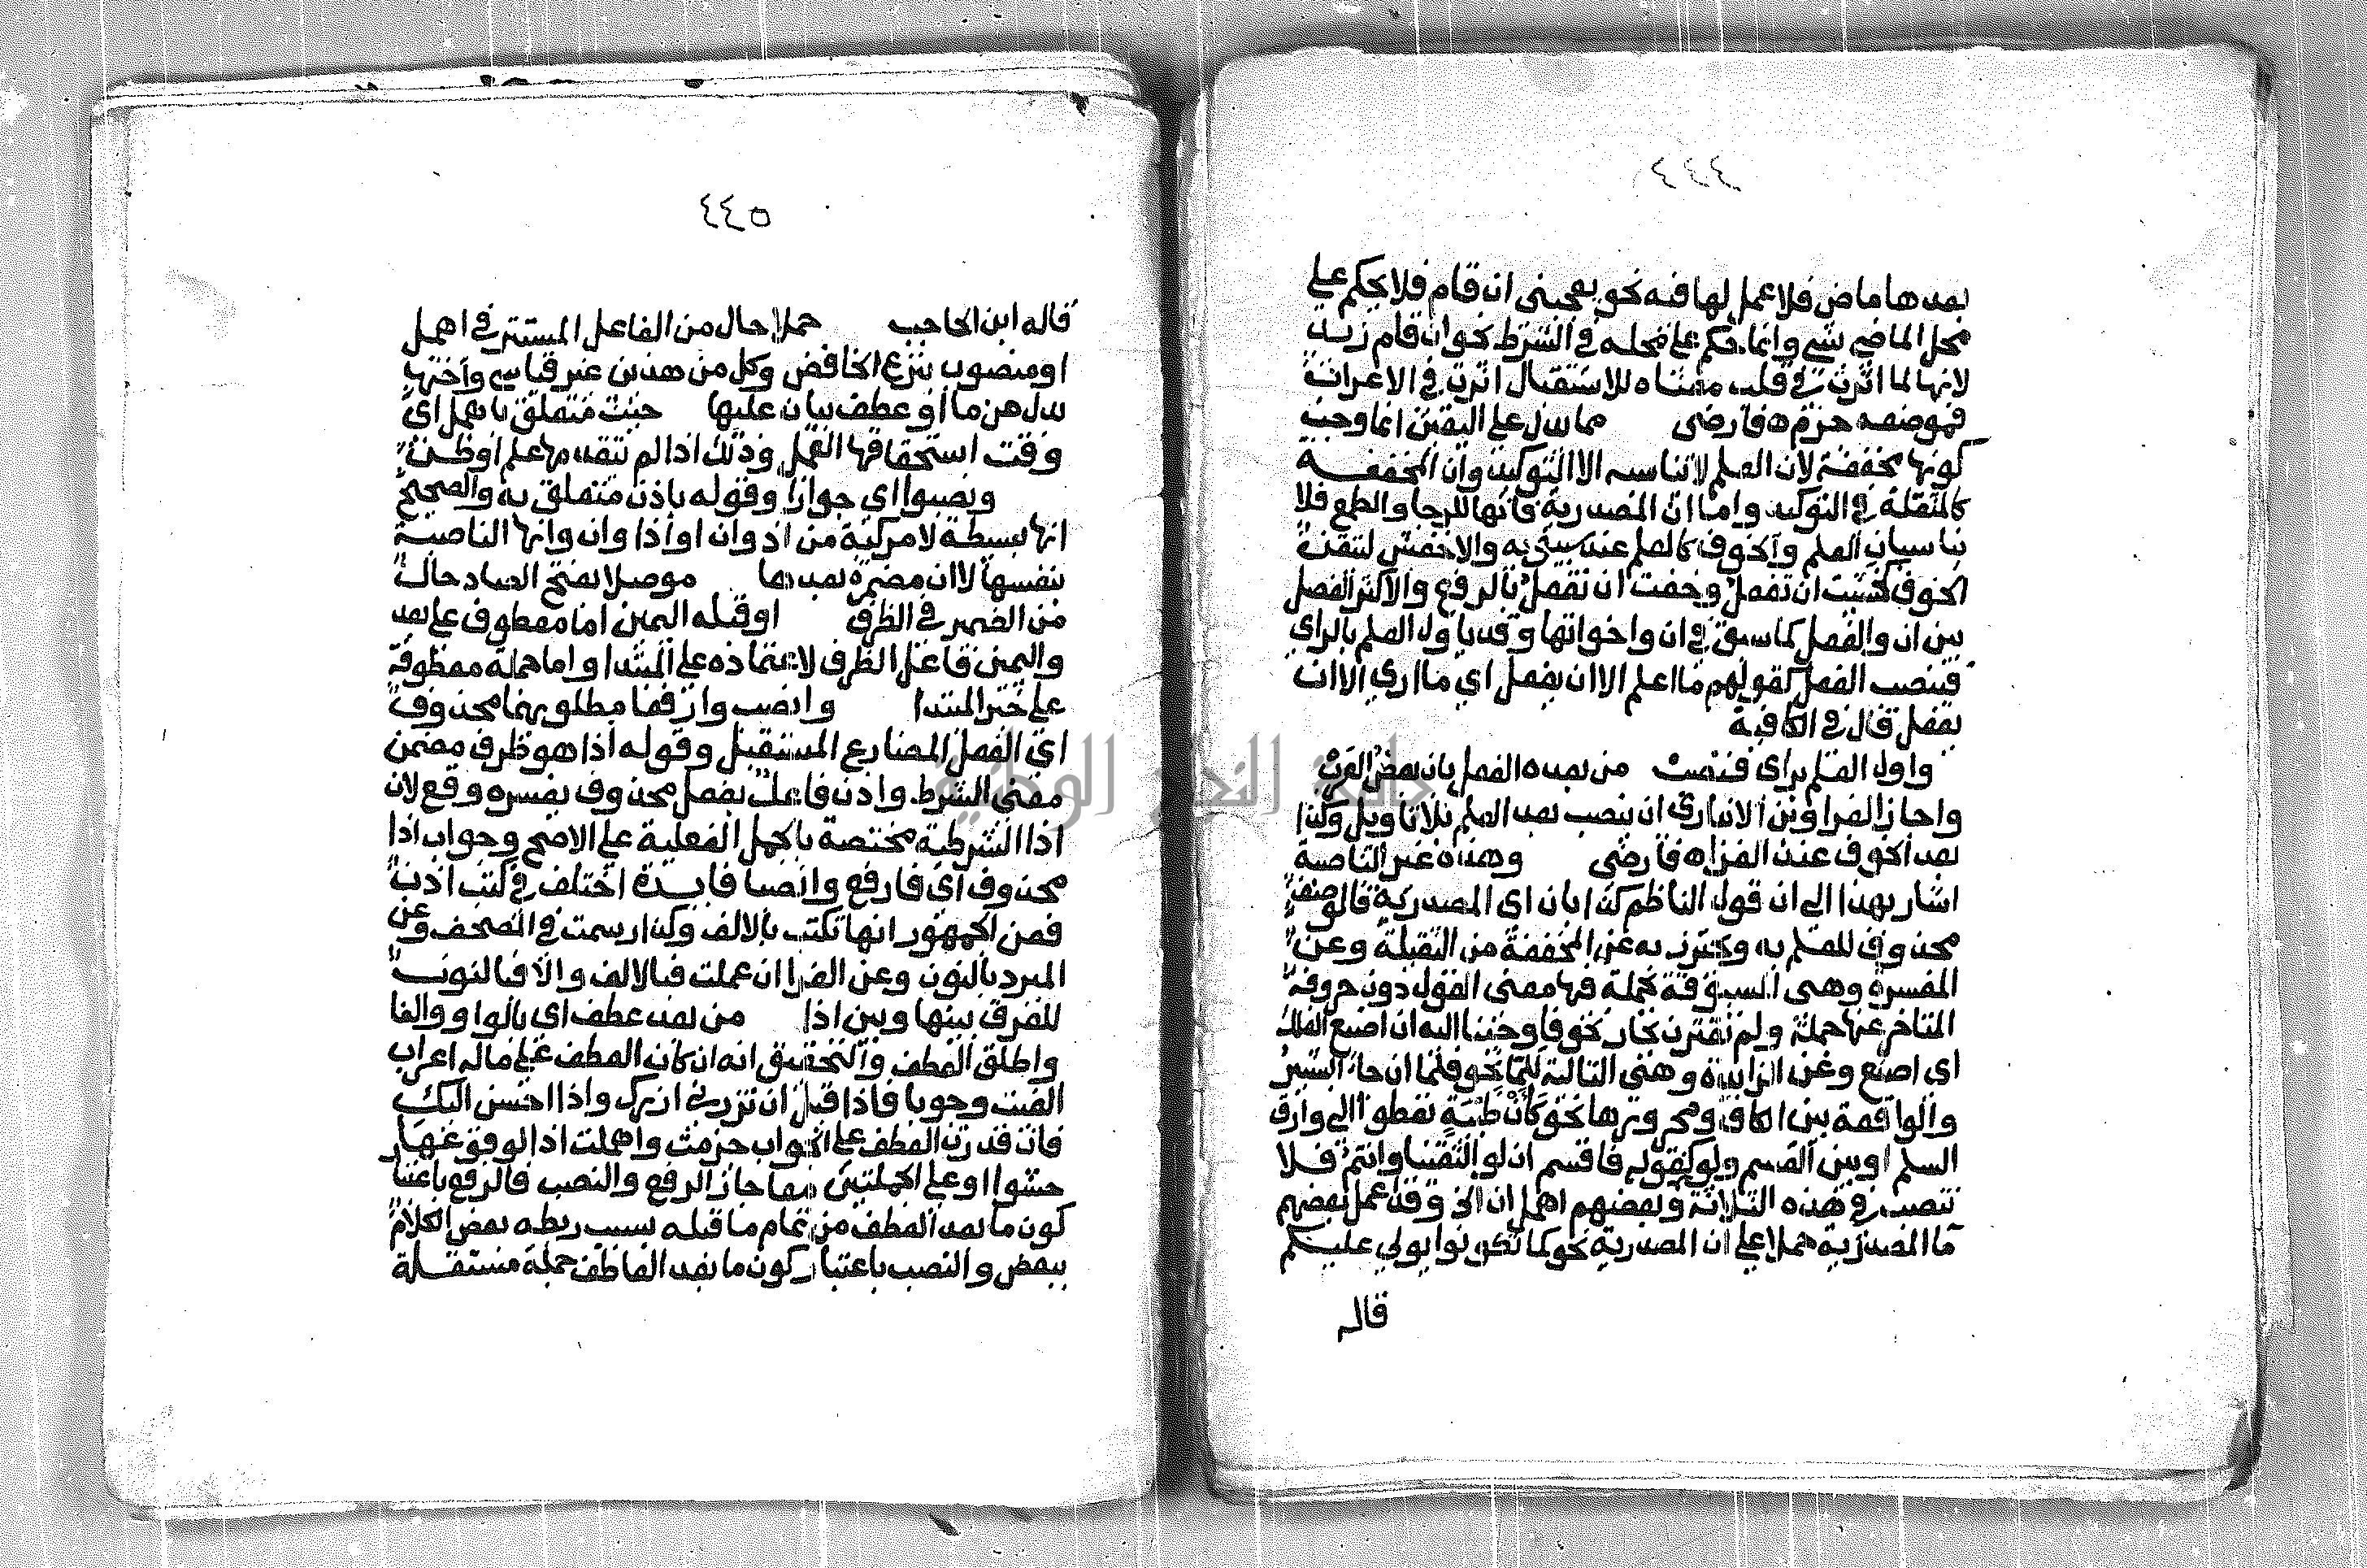 ٤٤٤
بعدها ماض فلا عمل لها فيه نحو يعجبني ان قام فلا يحكم على
محل الماضي بشي وانما حكم على محله في الشرط نحو ان قام زيد
لانها لما اثرت في قلب معناه للاستقبال اثرت في الاعراب
فموضعه جزم ه فارضى مما يدل على اليقين انما وجب
كونها مخففة لان العلم لا يناسبه الا التوكيد وان المخففة
كالمثقلة في التوكيد واما ان المصدرية فانها للرجا والطمع فلا
يناسبان العلم والخوف كالعلم عند سيبويه والاخفش لتيقن
الخوف كخشيت ان تفعل وخفت ان تفعل بالرفع والاكثر الفصل
بين ان والفعل كما سبق في ان واخواتها وقد ياول العلم بالراي
فينصب الفعل كقولهم ما اعلم الا ان يفعل اي ما اري الا ان
يفعل قال في الكافية
واول العلم براى فنصب من بعده الفعل بان بعض العرب
واجاز الفرا وابن الانباري ان ينصب بعد العلم بلا تاويل وكذا
بعد الخوف عند الفراه فارضى وهذه غير الناصبة
اشار بهذا الى ان قول الناظم كذا بان اى المصدرية فالوصف
محذوف للعلم به ويحترز به عن المخففة من الثقيلة وعن
المفسرة وهى المسبوقة بجملة فيها معنى القول دون حروفه
المتاخر عنها جملة ولم تقترن بجار نحو فاوحينا اليه ان اصنع الفلك
اى اصنع وعن الزايدة وهى التالية للما نحو فلما ان جا البشير
والواقعة بين الكاف ومجرورها نحو كان ظبية تعطو الى وارق
السلم او بين القسم ولو كقوله فاقسم ان لو التقينا وانتم فلا
تنصب في هذه الثلاثة وبعضهم اهمل ان الخ وقد عمل بعضهم
ما المصدرية حملا على ان المصدرية نحو كما تكونوا يولي عليكم
قال
٤٤٥
قاله ابن الحاجب حملا حال من الفاعل المستتر في اهمل
او منصوب بنزع الخافض وكل من هذين غير قياسي واختها
بدل من ما او عطف بيان عليها حيث متعلق باهمل اى
وقت استحقاقها العمل وذلك اذا لم يتقدمها علم او ظن
ونصبوا اى جوازا وقوله باذن متعلق به والصحيح
انها بسيطة لا مركبة من اذ وان او اذا وان وانها الناصبة
بنفسها لا ان مضمرة بعدها موصلا بفتح الصاد حال
من الضمير في الظرف او قبله اليمين اما معطوف على بعد
واليمين فاعل الظرف لاعتماده على المبتدا واما جملة معطوفة
على خبر المبتدا وانصب وارفعا مطلوبهما محذوف
اى الفعل المضارع المستقبل وقوله اذا هو ظرف مضمن
معنى الشرط واذن فاعل بفعل محذوف يفسره وقع لان
اذا الشرطية مختصة بالجمل الفعلية على الاصح وجواب اذا
محذوف اى فارفع وانصبا فايدة اختلف في كتب اذن
فعن الجمهور انها تكتب بالالف وكذا رسمت في المصحف وعن
المبرد بالنون وعن الفرا ان عملت فبالالف والا فبالنون
للفرق بينها وبين اذا من بعد عطف اى بالواو والفا
واطلق العطف والتحقيق انه ان كان العطف على ماله اعراب
الغيت وجوبا فاذا قيل ان تزرني ازرك واذا احسن اليك
فان قدرت العطف على الجواب جزمت واهملت اذا لوقوعها
حشوا او على الجملتين معا جاز الرفع والنصب فالرفع باعتبار
كون ما بعد العطف من تمام ما قبله بسبب ربطه بعض الكلام
ببعض والنصب باعتبار كون ما بعد العاطف جملة مستقلة